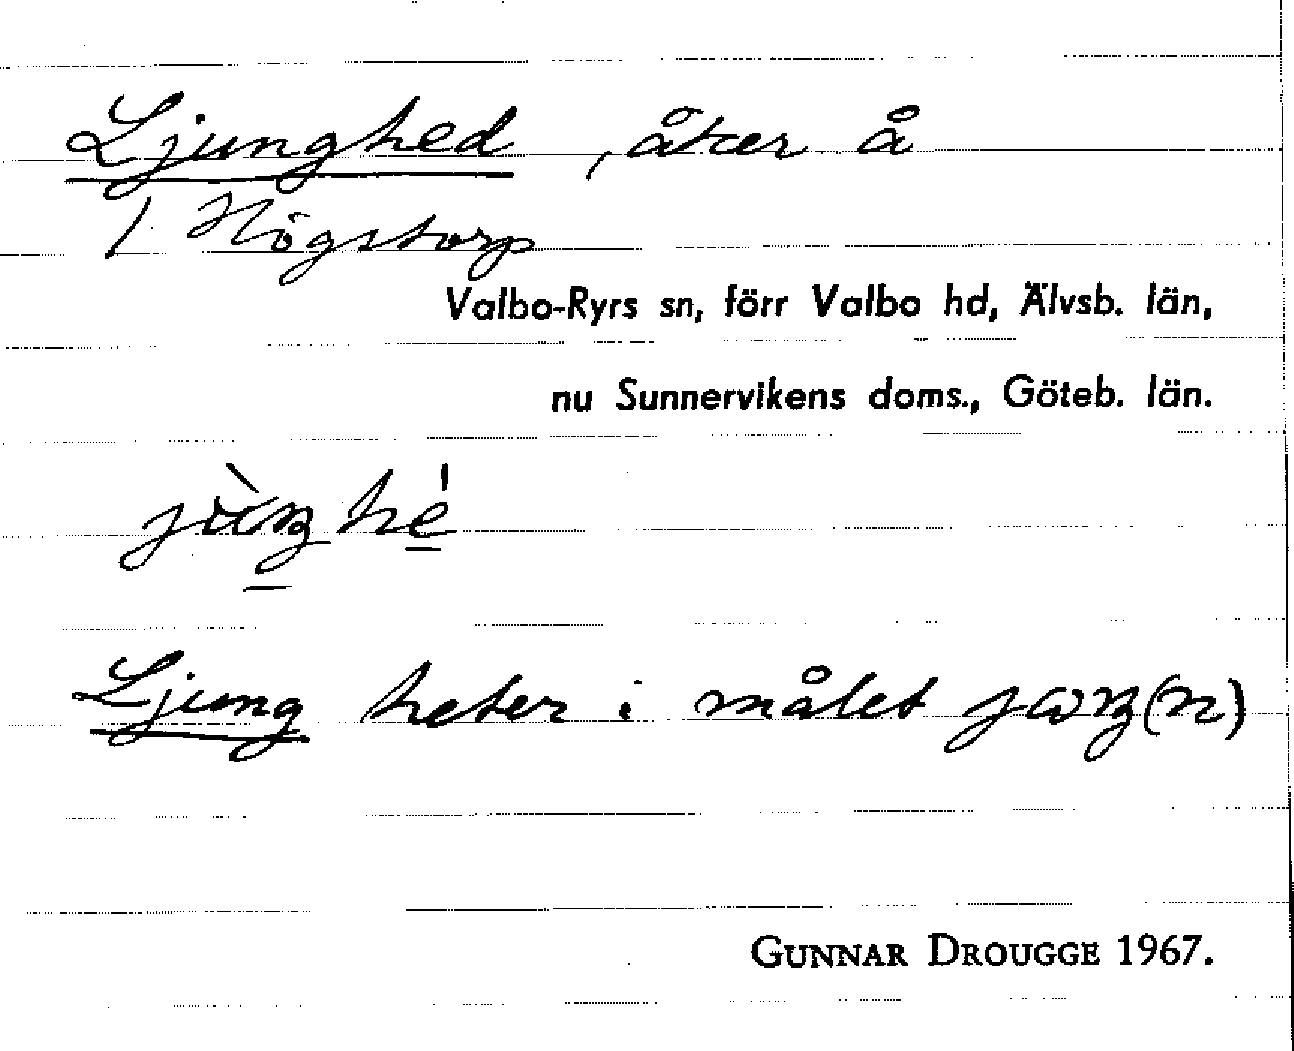 Ljunghed, åker å
/ Högstorp
Valbo-Ryrs sn, förr Valbo hd, Älvsb. län,
nu Sunnervikens doms., Göteb. län.
jùŋhé
Ljung heter i målet jωŋ(n)
GUNNAR DROUGGE 1967.